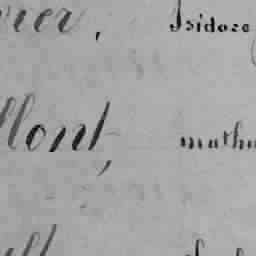 vier, Isidore
llont, mathu